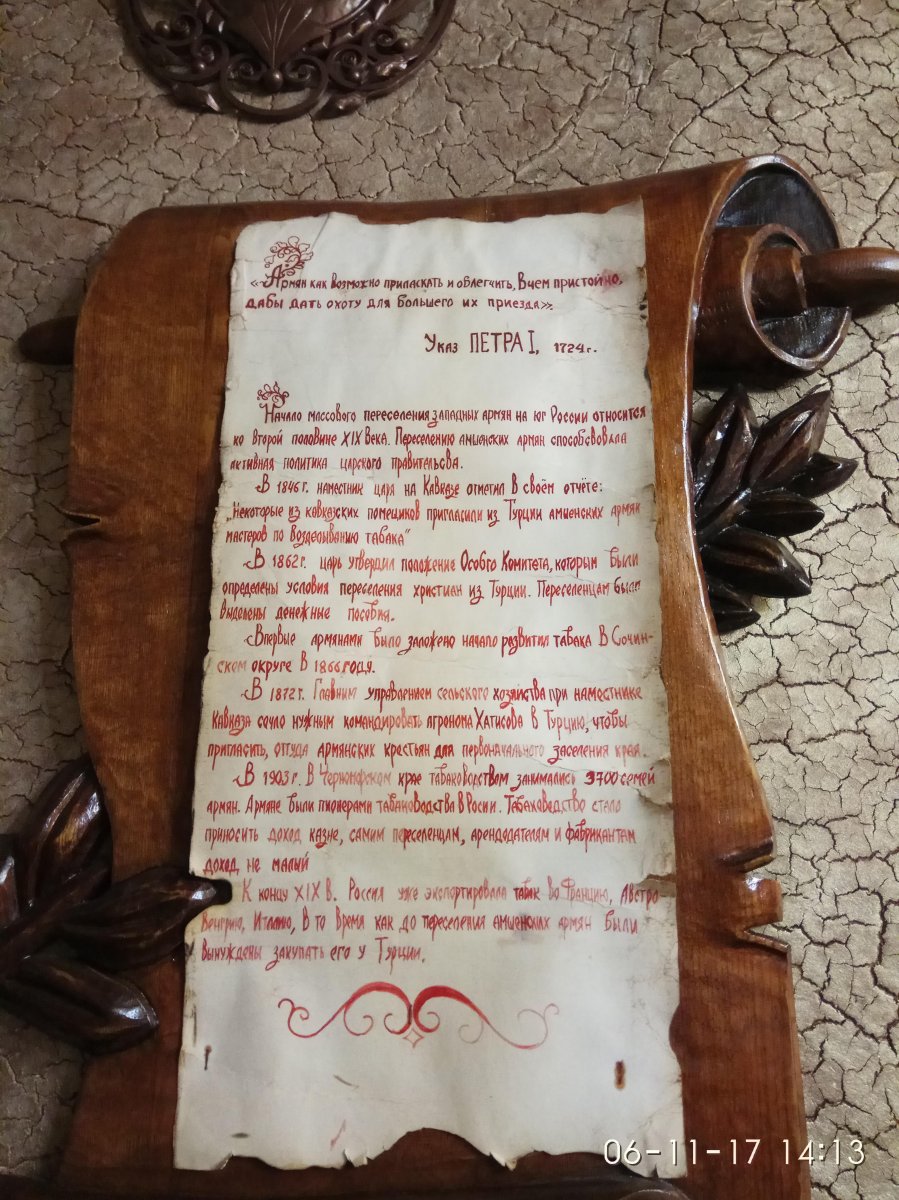 «Армян как возможно приласкать и облегчить, в чем пристойно,
дабы дать охоту для большего их приезда».
Указ ПЕТРА I, 1724г.
Начало массового переселения западных армян на юг России относится
ко второй половине XIX века. Переселению амшенских армян способсвовала
активная политика царского правительсва.
В 1846г. наместник царя на Кавказе отметил в своём отчёте:
„Некоторые из кавказских помещиков пригласили из Турции амшенских армян
мастеров по возделыванию табака"
В 1862г. царь утвердил положение Особго Комитета, которым были
определены условия переселения христиан из Турции. Переселенцам были
выделены денежные пособия.
Впервые армянами было заложено начало развития табака в Сочин-
ском округе в 1866 года.
В 1872г. Главным управлением сельского хозяйства при наместнике
Кавказа сочло нужным командировать агронома Хатисова в Турцию, чтобы
пригласить, оттуда армянских крестьян для первоначального заселения края.
В 1903г. В Черноморском крае табаководством занимались 3700 семей
армян. Армяне были пионерами табаководства в Росии. Табаководство стало
приносить доход казне, самим переселенцам, арендодателям и фабрикантам
доход не малый
К концу XIX в. Россия уже экспортировала табак во Францию, Австро
Венгрию, Италию, в то время как до переселения амшенских армян были
вынуждены закупать его у Турции.
06-11-17 14:13